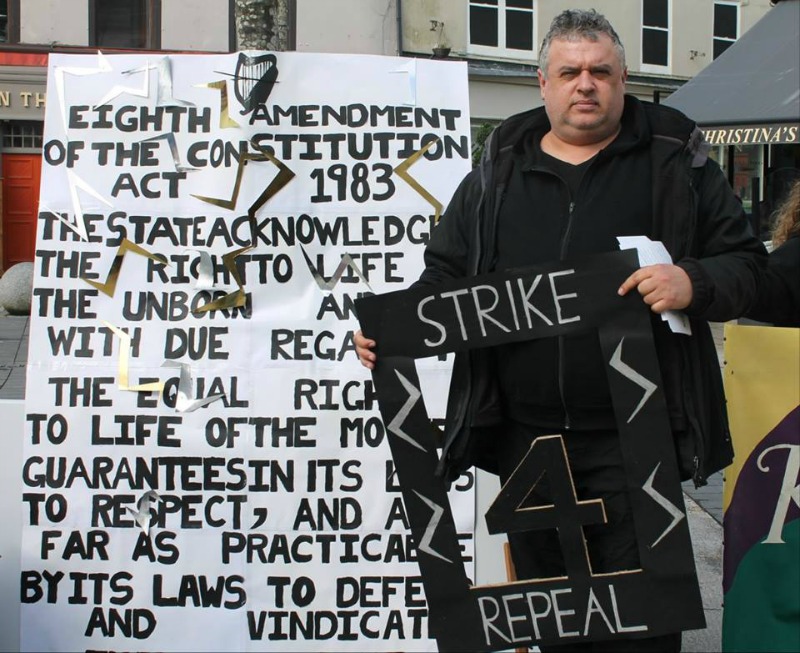 EIGHTH AMENDMENT
OF THE CONSTITUTION
ACT 1983
THE STATE ACKNOWLEDGE
THE RIGHT TO LIFE
THE UNBORN AN
WITH DUE REGA
THE EQUAL RIGH
TO LIFE OF THE MO
GUARANTEES IN ITS
TO RESPECT, AND A
FAR AS PRACTICABLE
BY ITS LAWS TO DEFE
AND VINDICAT
STRIKE
4
REPEAL
N TH
CHRISTINA'S